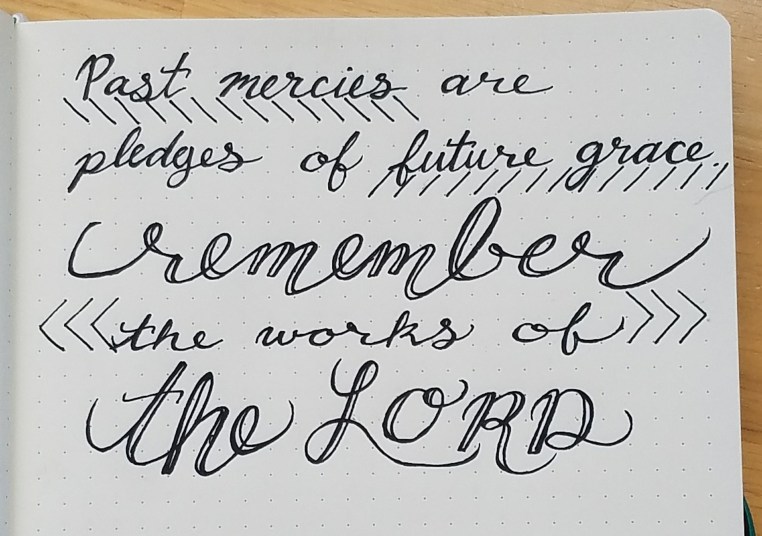 Past mercies are
pledges of future grace.
remember
the works of
the LORD